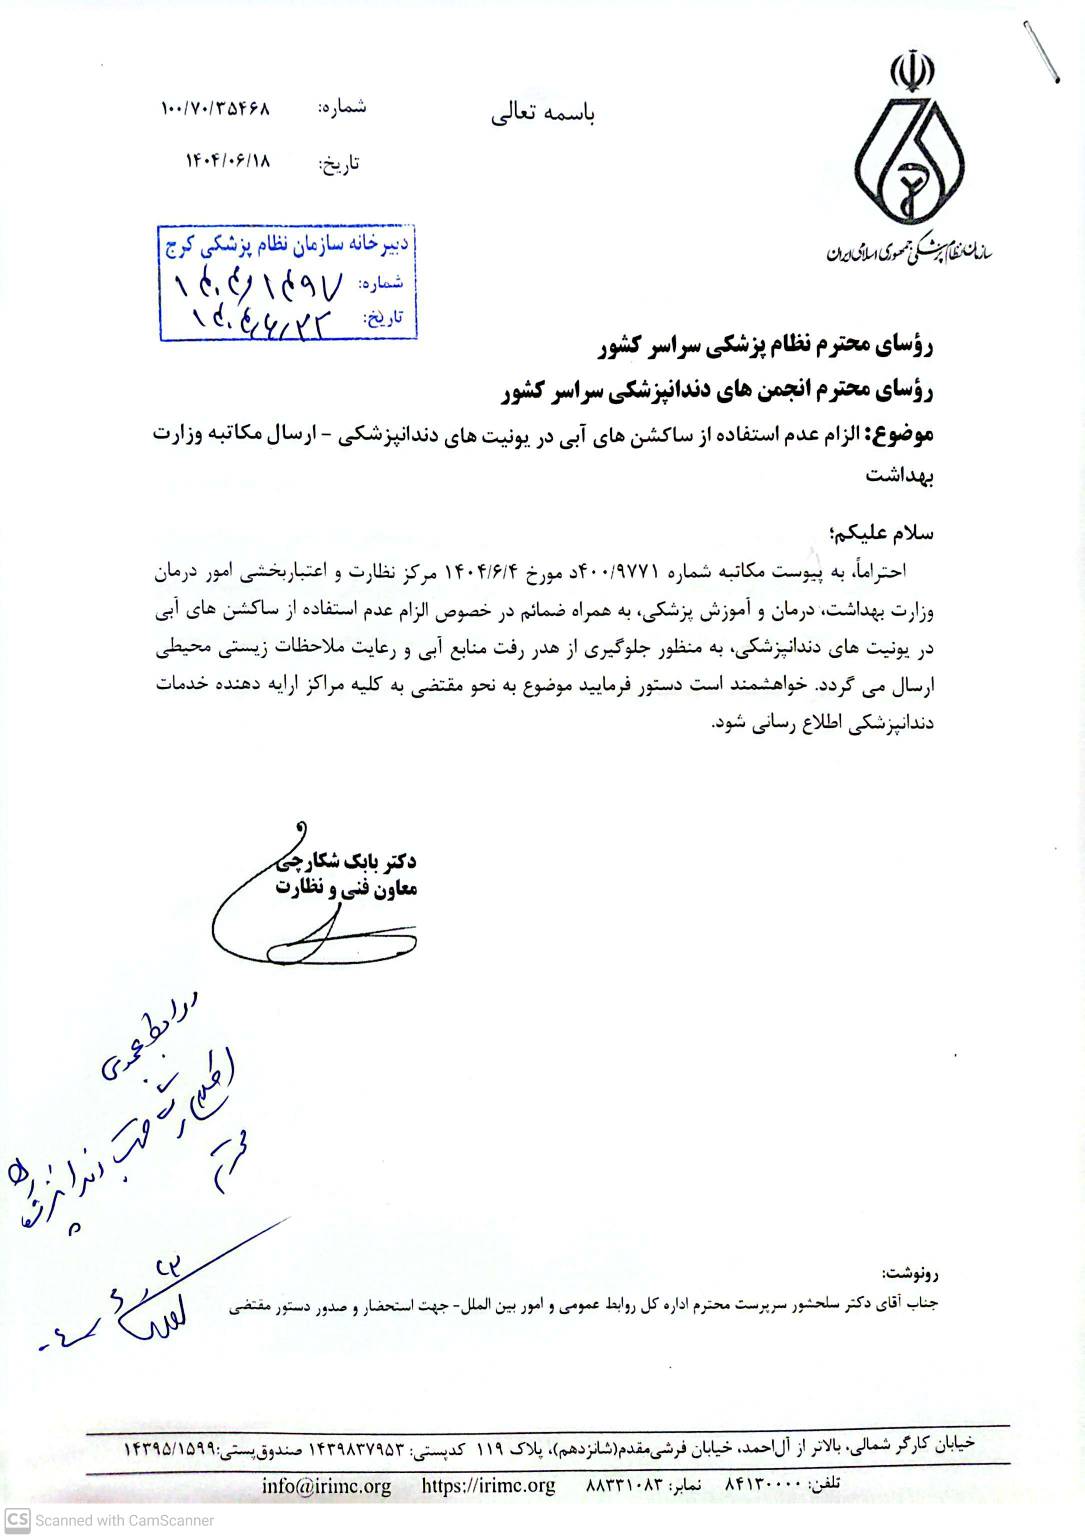 باسمه تعالی
شماره: ۱۰۰/۷۰/۳۵۴۶۸
تاریخ: ۱۴۰۴/۰۶/۱۸
سازمان نظام پزشکی جمهوری اسلامی ایران
دبیرخانه سازمان نظام پزشکی کرج
شماره: ۱۴۰۴/۱۴۹۷
تاریخ: ۱۴۰۴/۶/۲۳
رؤسای محترم نظام پزشکی سراسر کشور
رؤسای محترم انجمن های دندانپزشکی سراسر کشور
موضوع: الزام عدم استفاده از ساکشن های آبی در یونیت های دندانپزشکی - ارسال مکاتبه وزارت
بهداشت
سلام علیکم؛
احتراماً، به پیوست مکاتبه شماره ۴۰۰/۹۷۷۱د مورخ ۱۴۰۴/۶/۴ مرکز نظارت و اعتباربخشی امور درمان
وزارت بهداشت، درمان و آموزش پزشکی، به همراه ضمائم در خصوص الزام عدم استفاده از ساکشن های آبی
در یونیت های دندانپزشکی، به منظور جلوگیری از هدر رفت منابع آبی و رعایت ملاحظات زیستی محیطی
ارسال می گردد. خواهشمند است دستور فرمایید موضوع به نحو مقتضی به کلیه مراکز ارایه دهنده خدمات
دندانپزشکی اطلاع رسانی شود.
دکتر بابک شکارچی
معاون فنی و نظارت
روابط عمومی
جهت دندانپزشکان
محترم
رونوشت:
جناب آقای دکتر سلحشور سرپرست محترم اداره کل روابط عمومی و امور بین الملل- جهت استحضار و صدور دستور مقتضی
خیابان کارگر شمالی، بالاتر از آل‌احمد، خیابان فرشی‌مقدم(شانزدهم)، پلاک ۱۱۹ کدپستی: ۱۴۳۹۸۳۷۹۵۳ صندوق‌پستی:۱۴۳۹۵/۱۵۹۹
تلفن: ۸۴۱۳۰۰۰۰ نمابر: ۸۸۳۳۱۰۸۳ https://irimc.org info@irimc.org
CS Scanned with CamScanner